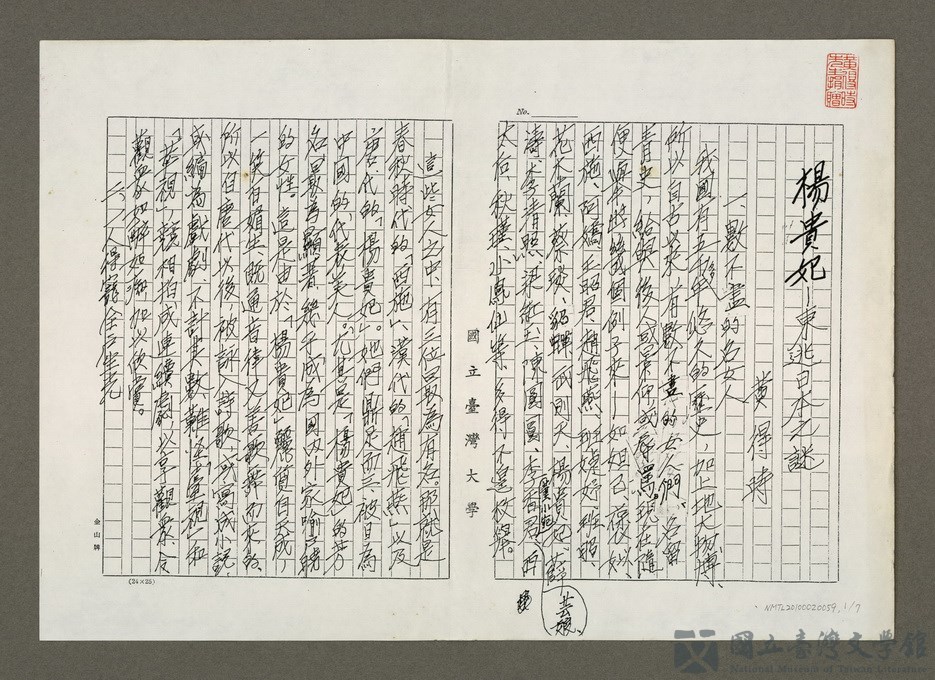 No.
楊貴妃—東逃日本之謎
黃得時
一、數不盡的名女人
我國有五千年悠久的歷史,加上地大物博、
所以自古以來,有數不盡的女人們,名留
青史,給與後人或景仰或辱罵。現在隨
便舉出幾個例子來—如妲己、褒姒、
西施、阿嬌、王昭君、趙飛燕、班婕妤、班昭、
花木蘭、蔡琰、貂蟬、武則天、楊貴妃、薛
濤、李清照、梁紅玉、陳圓圓、李香君、董小宛、西
芸娘、
太后、秋瑾、小鳳仙等,多得不遑枚舉。
國立臺灣大學
這些女人之中,有三位最為有名。那就是
春秋時代的「西施」、漢代的「趙飛燕」以及
唐代的「楊貴妃」。她們鼎足而三,被目為
中國的代表美人。尤其是「楊貴妃」的芳
名最為顯著,幾乎成為國內外家喻戶曉
的女性。這是由於「楊貴妃」麗質自天成,
一笑百媚生,既通音律又善歌舞而來的。
所以自唐代以後,被詠入詩歌,或寫成小說,
或編為戲劇,不計其數,難怪臺視和
「華視」競相拍成連續劇,以享觀眾,令
觀眾如醉如癡加以欣賞。
二、
金山牌
(24×25)
NMTL20100020059, 1/7
國立臺灣文學館
National Museum of Taiwan Literature